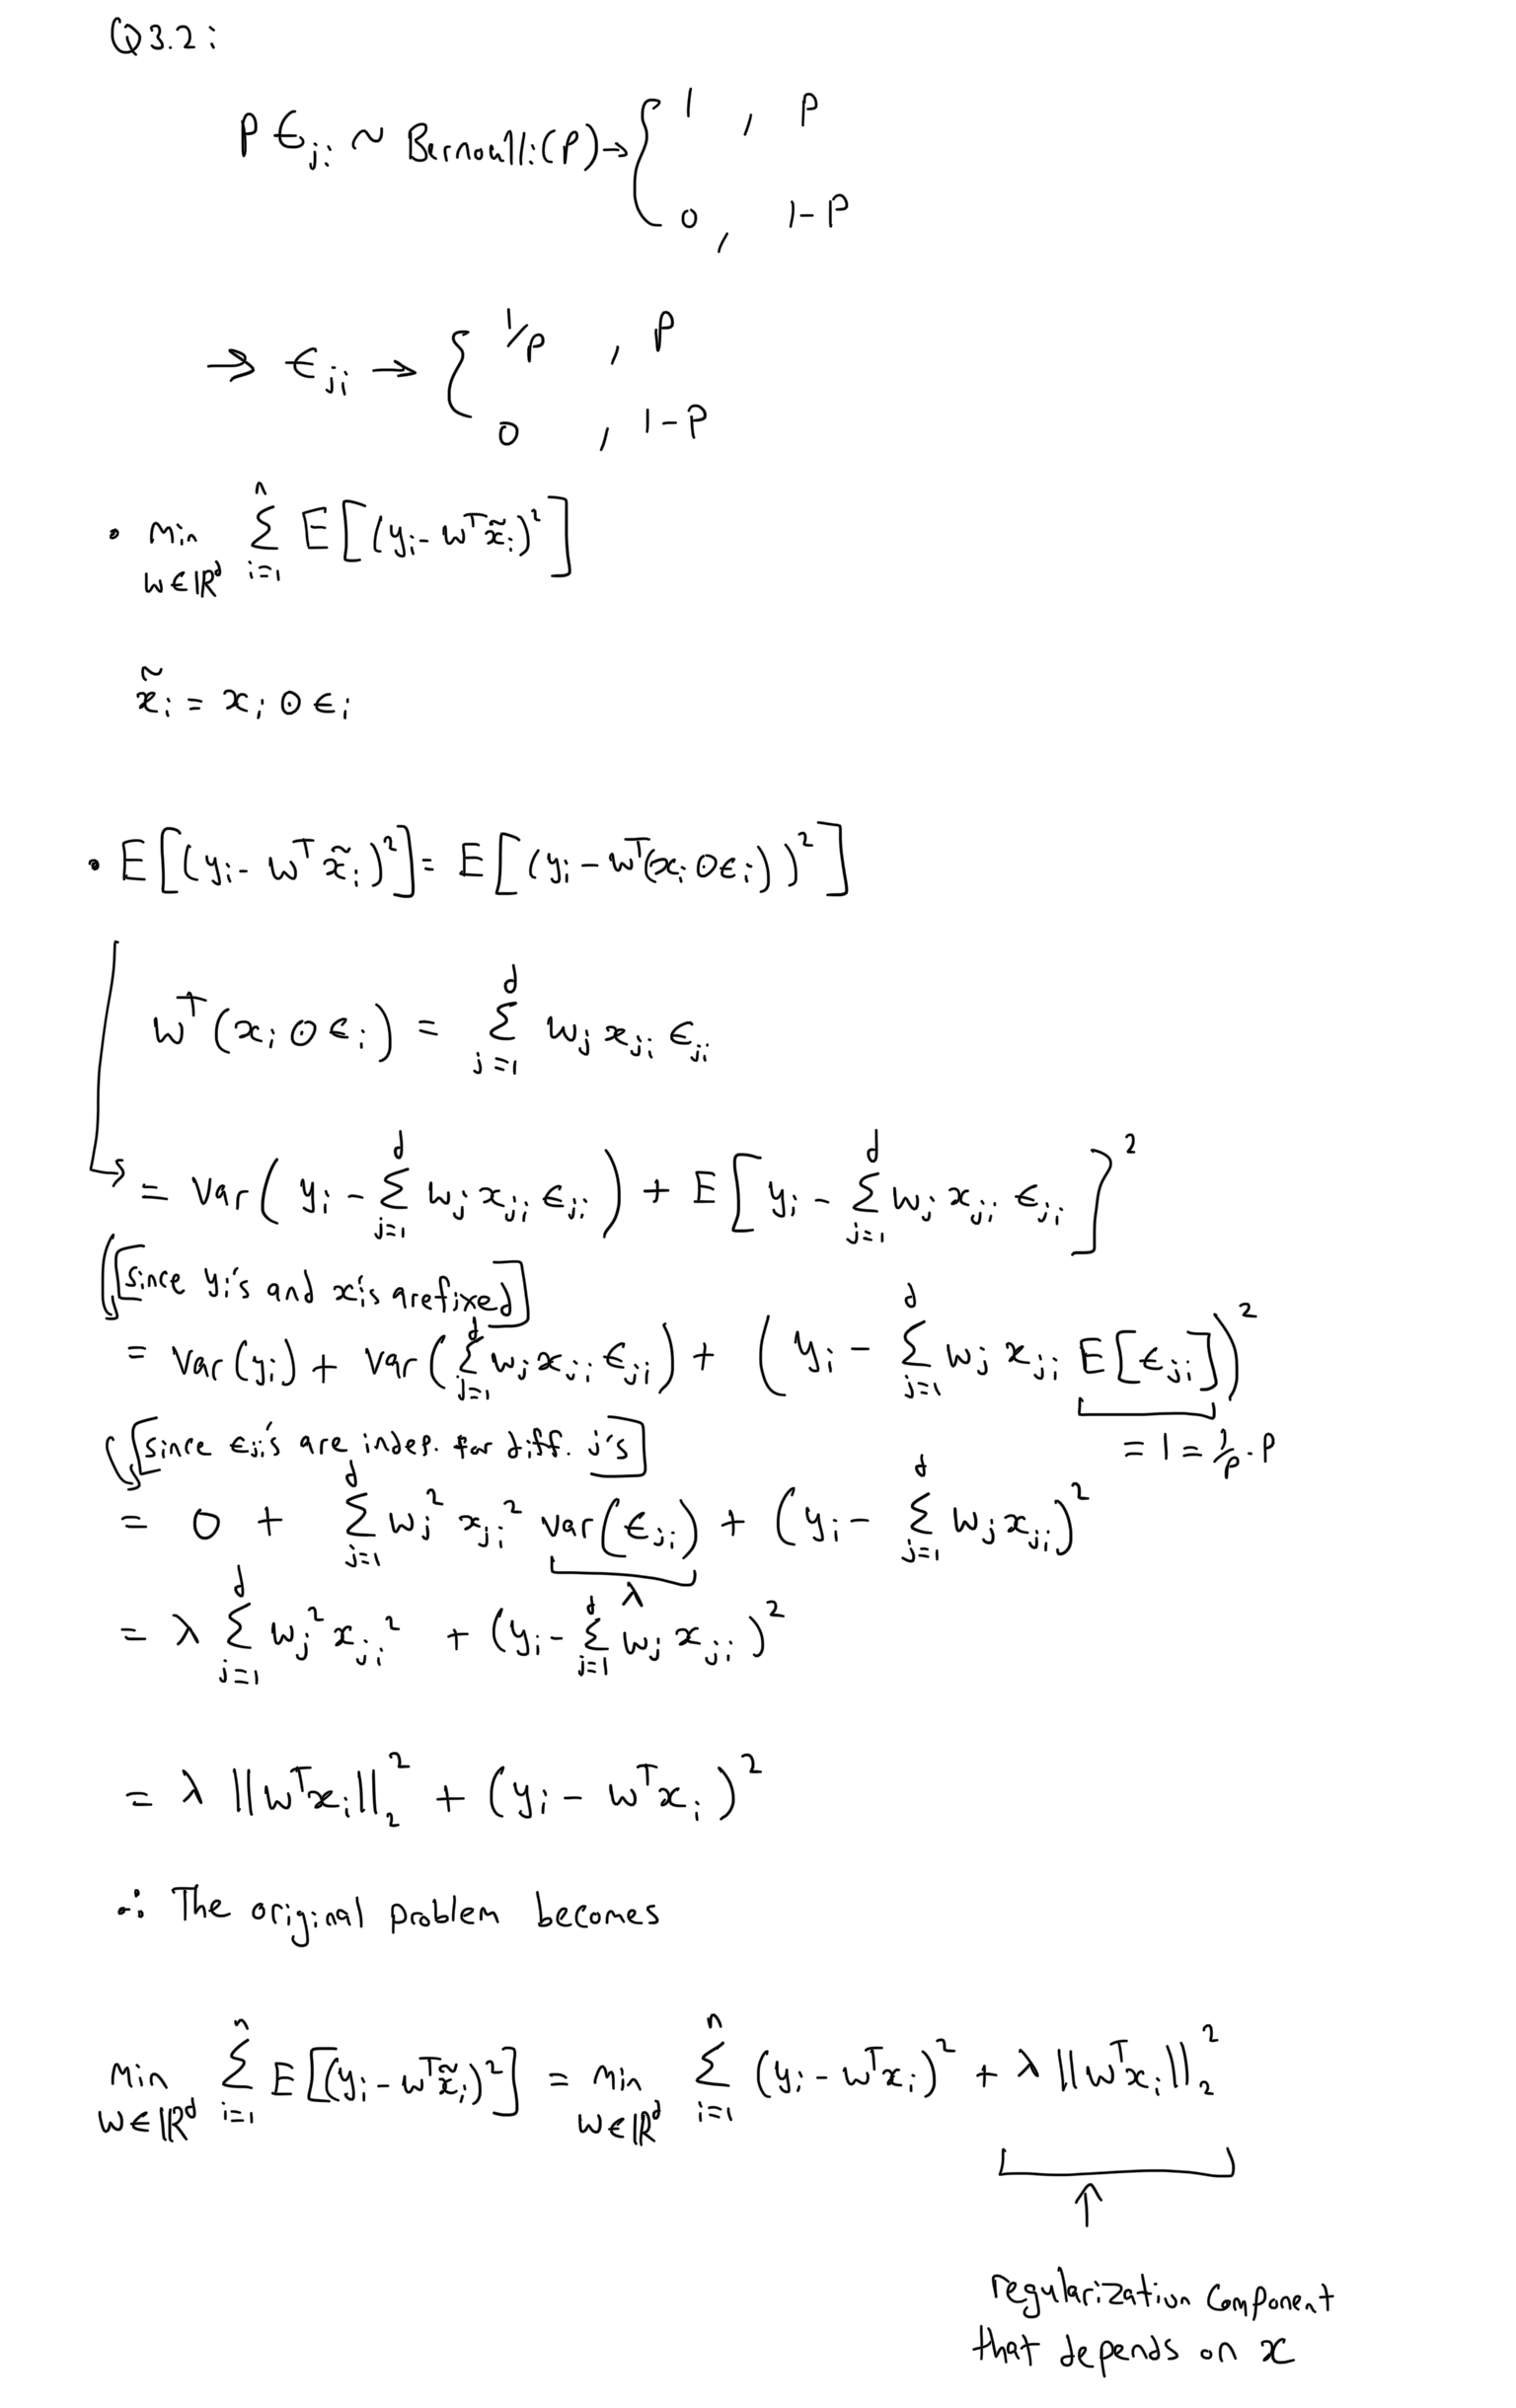 Q3.2:
p ϵ_{ji} ~ Bernoulli(p) → { 1 , p
0 , 1-p
→ ϵ_{ji} → { 1/p , p
0 , 1-p
• min_{w∈ℝ^d} Σ_{i=1}^{n} E[(y_i - w^T x̃_i)^2]
x̃_i = x_i ⊙ ϵ_i
• E[(y_i - w^T x̃_i)^2] = E[(y_i - w^T(x_i ⊙ ϵ_i))^2]
w^T(x_i ⊙ ϵ_i) = Σ_{j=1}^{d} w_j x_{ji} ϵ_{ji}
↳ = Var(y_i - Σ_{j=1}^{d} w_j x_{ji} ϵ_{ji}) + E[y_i - Σ_{j=1}^{d} w_j x_{ji} ϵ_{ji}]^2
[since y_i's and x_i's are fixed]
= Var(y_i) + Var(Σ_{j=1}^{d} w_j x_{ji} ϵ_{ji}) + (y_i - Σ_{j=1}^{d} w_j x_{ji} E[ϵ_{ji}])^2
= 1 = 1/p · p
[since ϵ_{ji}'s are indep. for diff. j's]
= 0 + Σ_{j=1}^{d} w_j^2 x_{ji}^2 Var(ϵ_{ji}) + (y_i - Σ_{j=1}^{d} w_j x_{ji})^2
λ
= λ Σ_{j=1}^{d} w_j^2 x_{ji}^2 + (y_i - Σ_{j=1}^{d} w_j x_{ji})^2
= λ ||w^T x_i||_2^2 + (y_i - w^T x_i)^2
∴ The original problem becomes
min_{w∈ℝ^d} Σ_{i=1}^{n} E[(y_i - w^T x̃_i)^2] = min_{w∈ℝ^d} Σ_{i=1}^{n} (y_i - w^T x_i)^2 + λ ||w^T x_i||_2^2
↑
regularization component
that depends on x